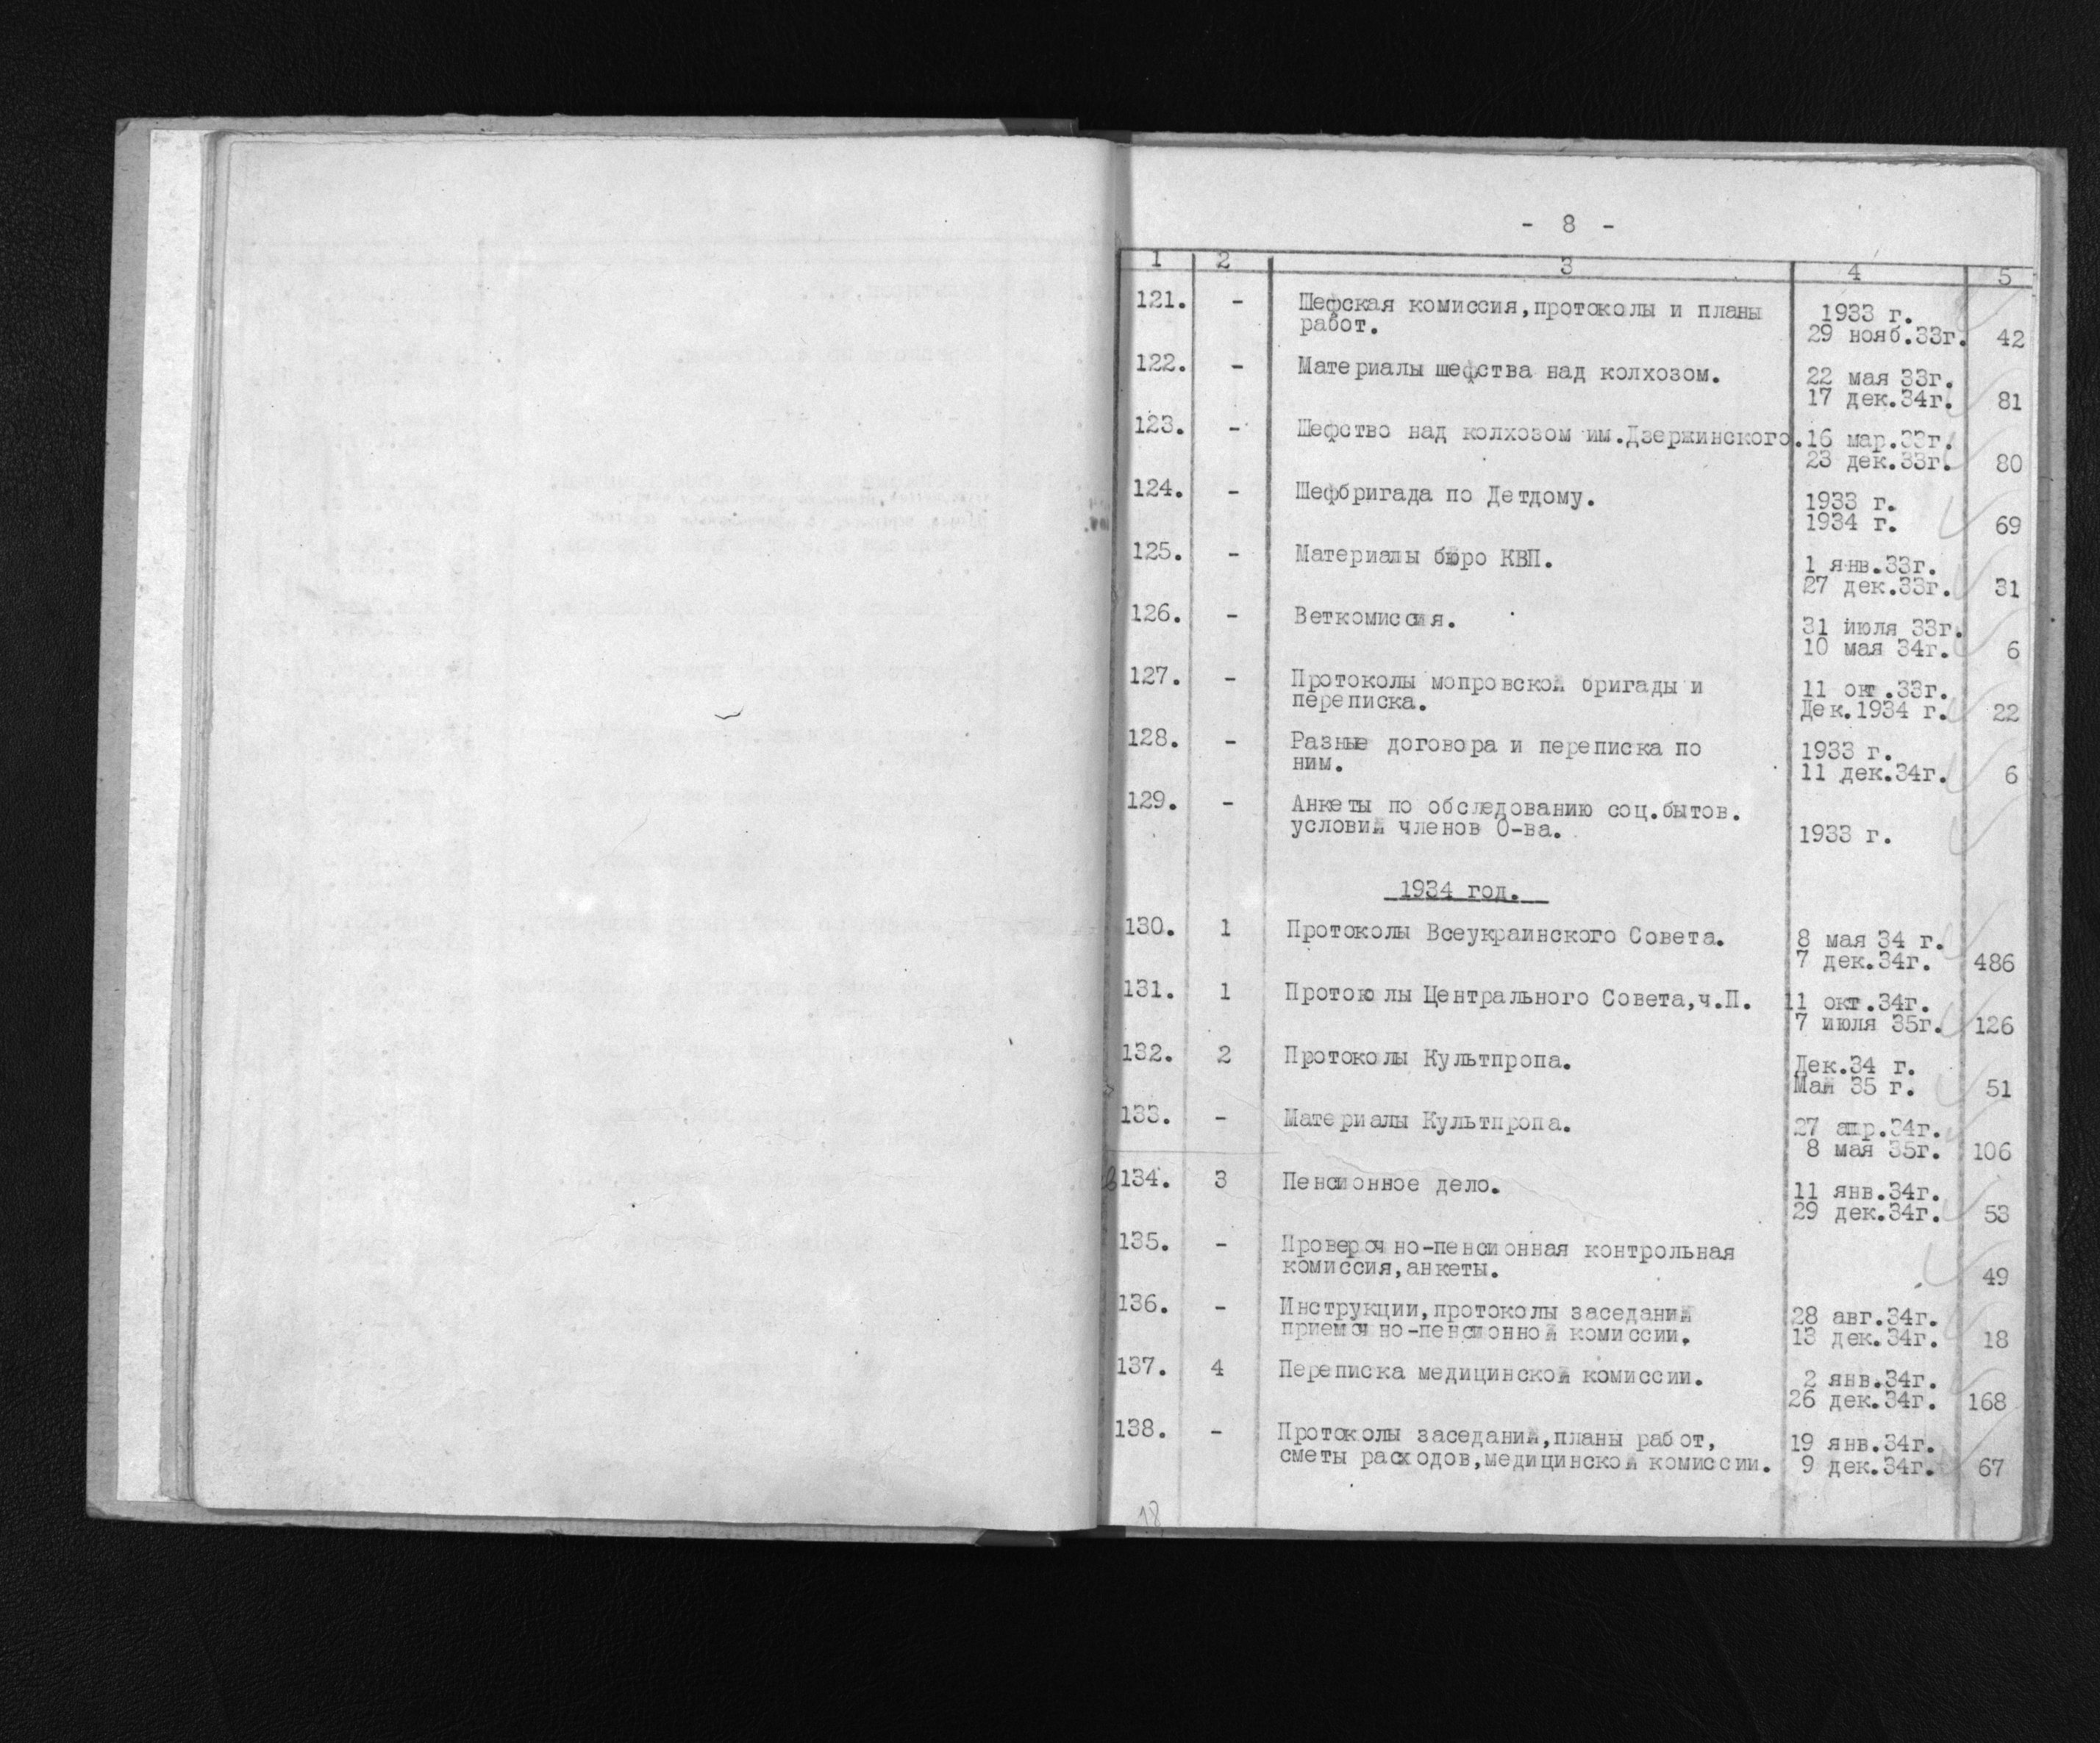 - 8 -
1 2 3 4 5
121. - Шефская комиссия,протоколы и планы 1933 г.
работ. 29 нояб.33г. 42
122. - Материалы шефства над колхозом. 22 мая 33г.
17 дек.34г. 81
123. - Шефство над колхозом им.Дзержинского. 16 мар.33г.
23 дек.33г. 80
124. - Шефбригада по Детдому. 1933 г.
1934 г. 69
125. - Материалы бюро КВП. 1 янв.33г.
27 дек.33г. 31
126. - Веткомиссия. 31 июля 33г.
10 мая 34г. 6
127. - Протоколы мопровской бригады и 11 окт.33г.
переписка. Дек.1934 г. 22
128. - Разные договора и переписка по 1933 г.
ним. 11 дек.34г. 6
129. - Анкеты по обследованию соц.бытов.
условий членов О-ва. 1933 г.
1934 год.
130. 1 Протоколы Всеукраинского Совета. 8 мая 34 г.
7 дек.34г. 486
131. 1 Протоколы Центрального Совета,ч.П. 11 окт.34г.
7 июля 35г. 126
132. 2 Протоколы Культпропа. Дек.34 г.
Май 35 г. 51
133. - Материалы Культпропа. 27 апр.34г.
8 мая 35г. 106
134. 3 Пенсионное дело. 11 янв.34г.
29 дек.34г. 53
135. - Проверочно-пенсионная контрольная
комиссия,анкеты. 49
136. - Инструкции,протоколы заседаний 28 авг.34г.
приемочно-пенсионной комиссии. 13 дек.34г. 18
137. 4 Переписка медицинской комиссии. 2 янв.34г.
26 дек.34г. 168
138. - Протоколы заседаний,планы работ, 19 янв.34г.
сметы расходов,медицинской комиссии. 9 дек.34г. 67
18